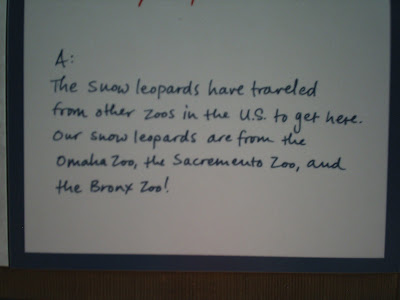 A:
The snow leopards have traveled
from other zoos in the U.S. to get here.
Our snow leopards are from the
Omaha Zoo, the Sacremento Zoo, and
the Bronx Zoo!